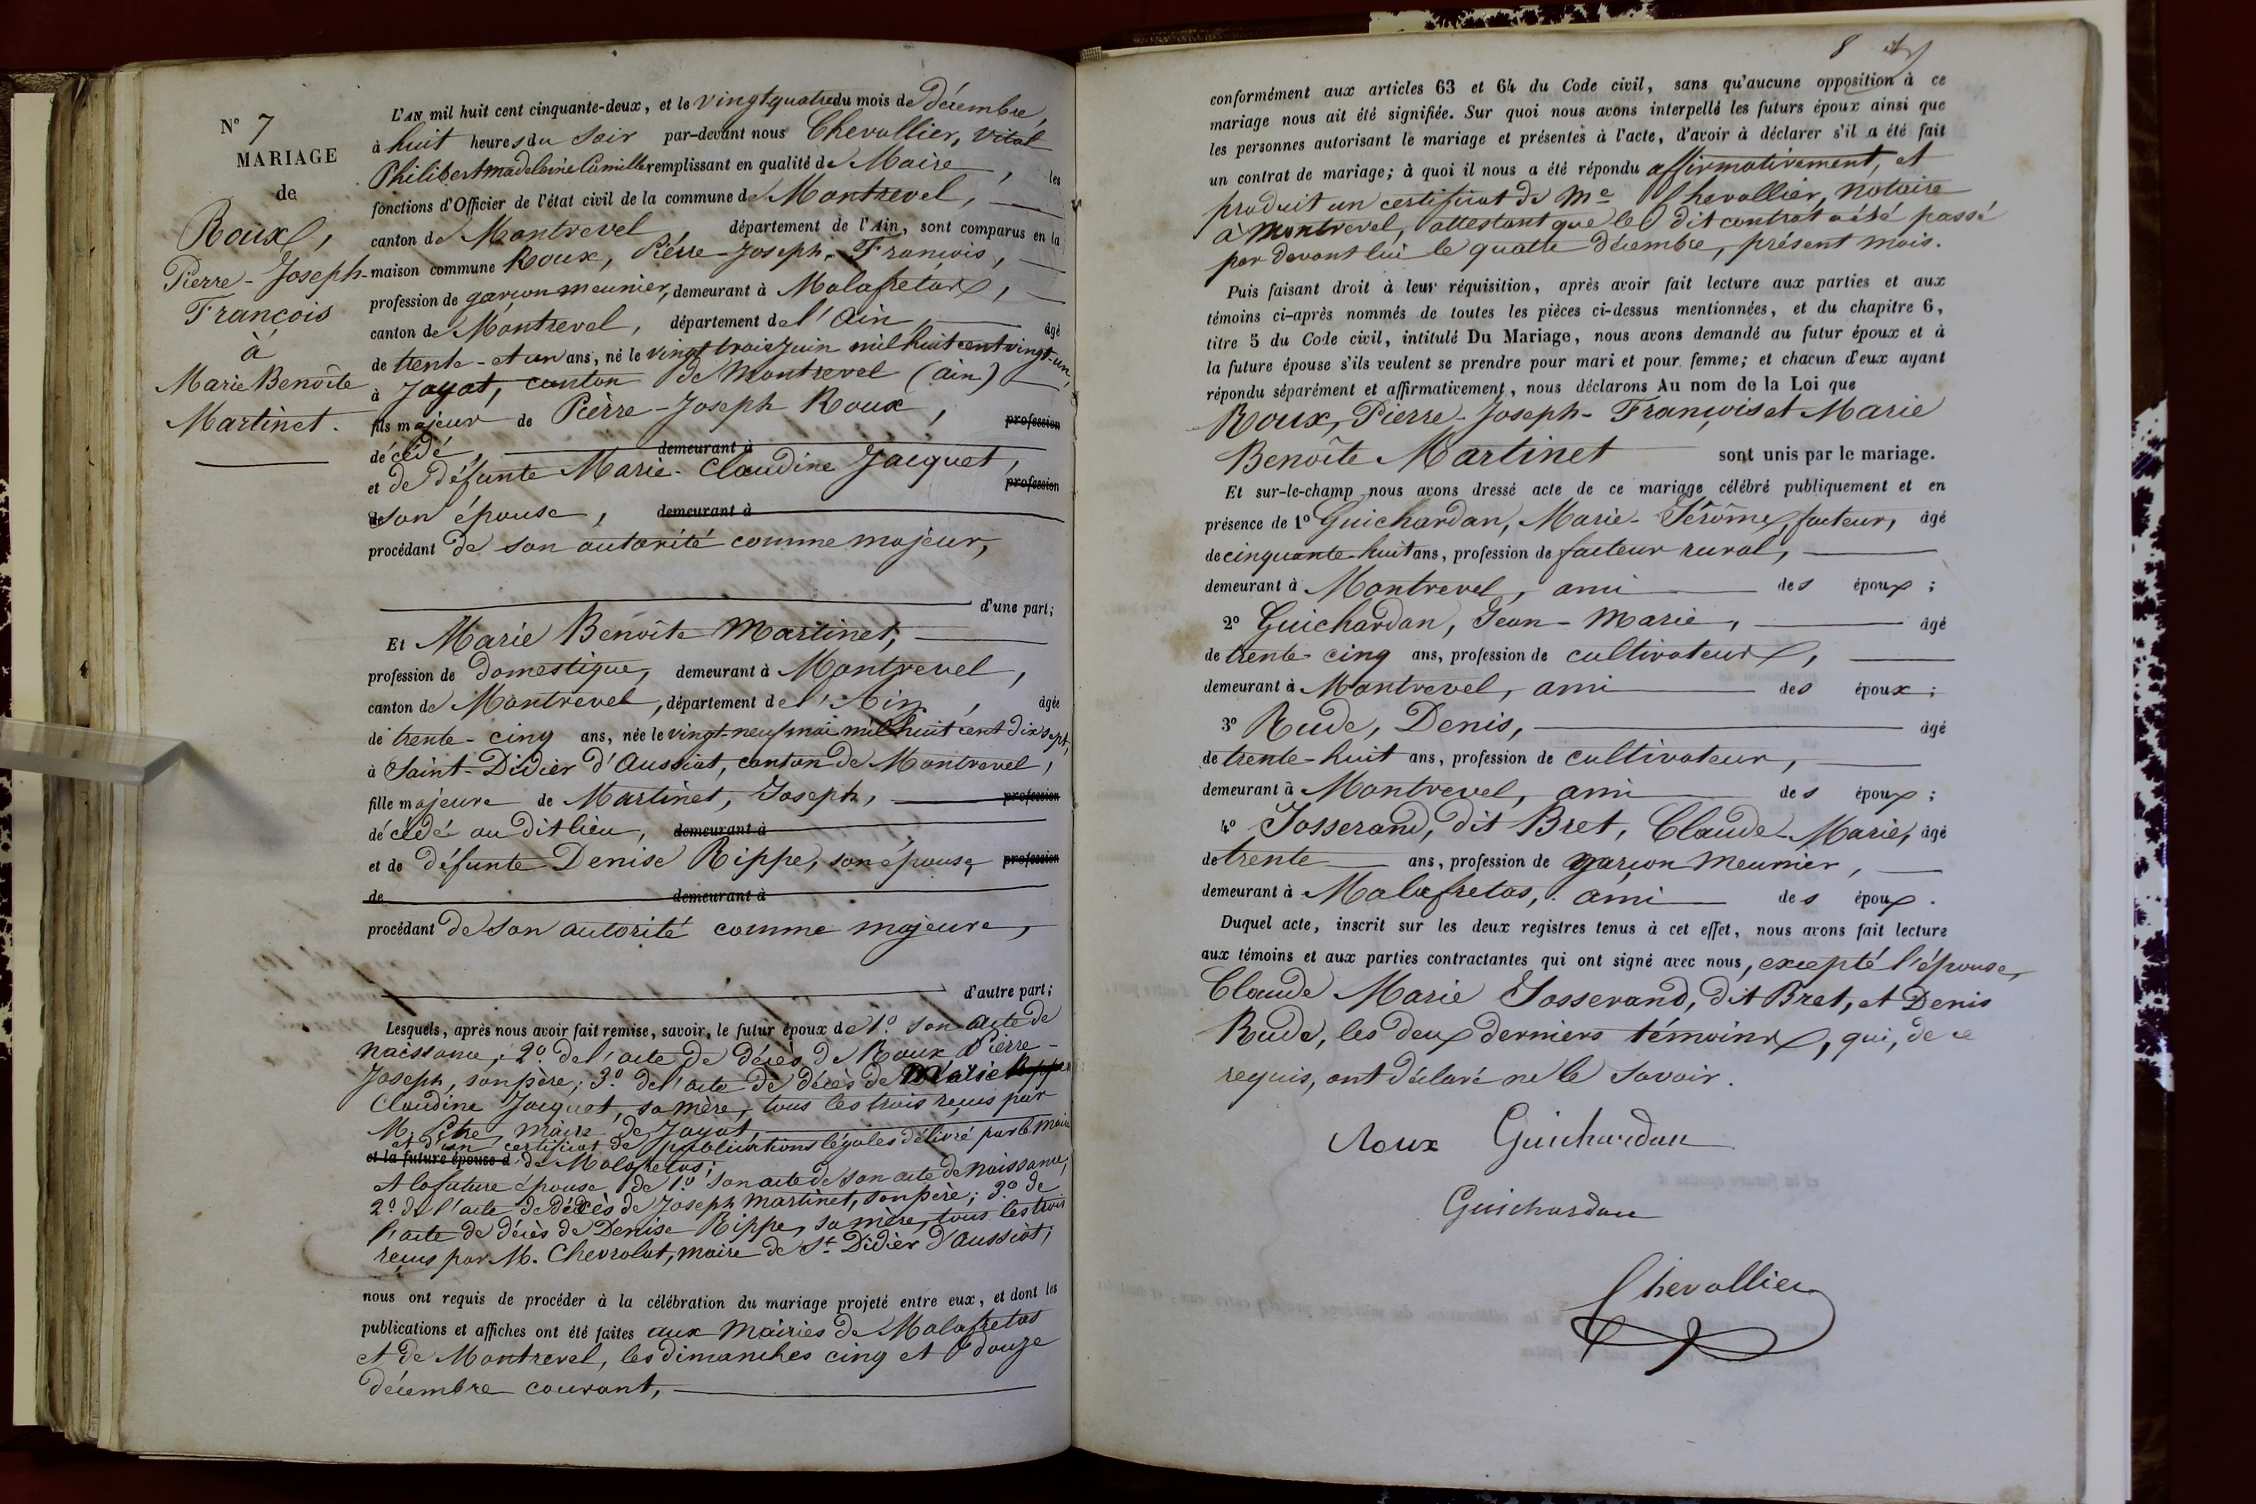 N° 7
MARIAGE
de
Roux,
Pierre-Joseph-
François
à
Marie Benoîte
Martinet.
L'AN mil huit cent cinquante-deux, et le vingt quatre du mois de Décembre,
à huit heures du soir par-devant nous Chevallier, Vital
Philibert madeleine Camille remplissant en qualité de Maire, les
fonctions d'Officier de l'état civil de la commune de Montrevel,
canton de Montrevel, département de l'Ain, sont comparus en la
maison commune Roux, Pierre-Joseph-François,
profession de garçon meunier, demeurant à Malafretas,
canton de Montrevel, département de l'Ain, âgé
de trente-et un ans, né le vingt trois Juin mil huit cent vingt-un,
à Jayat, canton de Montrevel (ain)
fils majeur de Pierre-Joseph Roux, profession
décédé, demeurant à
et de défunte Marie-Claudine Jacquet, profession
de son épouse, demeurant à
procédant de son autorité comme majeur,
d'une part;
Et Marie Benoîte Martinet,
profession de domestique, demeurant à Montrevel,
canton de Montrevel, département de l'Ain, âgée
de trente-cinq ans, née le vingt-neuf mai mil huit cent dix sept,
à Saint-Didier d'Aussiat, canton de Montrevel,
fille majeure de Martinet, Joseph, profession
décédé au dit lieu, demeurant à
et de défunte Denise Rippe, son épouse, profession
de demeurant à
procédant de son autorité comme majeure,
d'autre part;
Lesquels, après nous avoir fait remise, savoir, le futur époux de 1° son acte de
naissance; 2° de l'acte de décès de Roux Pierre-
Joseph, son père; 3° de l'acte de décès de Marie Rippe
Claudine Jacquet, sa mère, tous les trois reçus par
M. maire de Jayat,
et d'un certificat de publications légales délivré par le maire
et la future épouse d de Malafretas;
et la future épouse de 1° son acte de son acte de naissance;
2° de l'acte de décès de Joseph Martinet, son père; 3° de
l'acte de décès de Denise Rippe, sa mère, tous les trois
reçus par M. Chevrolat, maire de St Didier d'Aussiat;
nous ont requis de procéder à la célébration du mariage projeté entre eux, et dont les
publications et affiches ont été faites aux Mairies de Malafretas
et de Montrevel, les dimanches cinq et douze
décembre courant,
8
conformément aux articles 63 et 64 du Code civil, sans qu'aucune opposition à ce
mariage nous ait été signifiée. Sur quoi nous avons interpellé les futurs époux ainsi que
les personnes autorisant le mariage et présentes à l'acte, d'avoir à déclarer s'il a été fait
un contrat de mariage; à quoi il nous a été répondu affirmativement, et
produit un certificat de Me Chevallier, notaire
à Montrevel, attestant que le dit contrat a été passé
par devant lui le quatre décembre, présent mois.
Puis faisant droit à leur réquisition, après avoir fait lecture aux parties et aux
témoins ci-après nommés de toutes les pièces ci-dessus mentionnées, et du chapitre 6,
titre 5 du Code civil, intitulé Du Mariage, nous avons demandé au futur époux et à
la future épouse s'ils veulent se prendre pour mari et pour femme; et chacun d'eux ayant
répondu séparément et affirmativement, nous déclarons Au nom de la Loi que
Roux, Pierre-Joseph-François et Marie
Benoîte Martinet sont unis par le mariage.
Et sur-le-champ nous avons dressé acte de ce mariage célébré publiquement et en
présence de 1° Guichardan, Marie-Jérôme, facteur, âgé
de cinquante-huit ans, profession de facteur rural,
demeurant à Montrevel, ami des époux;
2° Guichardan, Jean-Marie, âgé
de trente-cinq ans, profession de cultivateur,
demeurant à Montrevel, ami des époux;
3° Rude, Denis, âgé
de trente-huit ans, profession de cultivateur,
demeurant à Montrevel, ami des époux;
4° Josserand, dit Bret, Claude-Marie, âgé
de trente ans, profession de garçon meunier,
demeurant à Malafretas, ami des époux.
Duquel acte, inscrit sur les deux registres tenus à cet effet, nous avons fait lecture
aux témoins et aux parties contractantes qui ont signé avec nous, excepté l'épouse,
Claude Marie Josserand, dit Bret, et Denis
Rude, les deux derniers témoins, qui, de ce
requis, ont déclaré ne le savoir.
Roux Guichardan
Guichardan
Chevallier